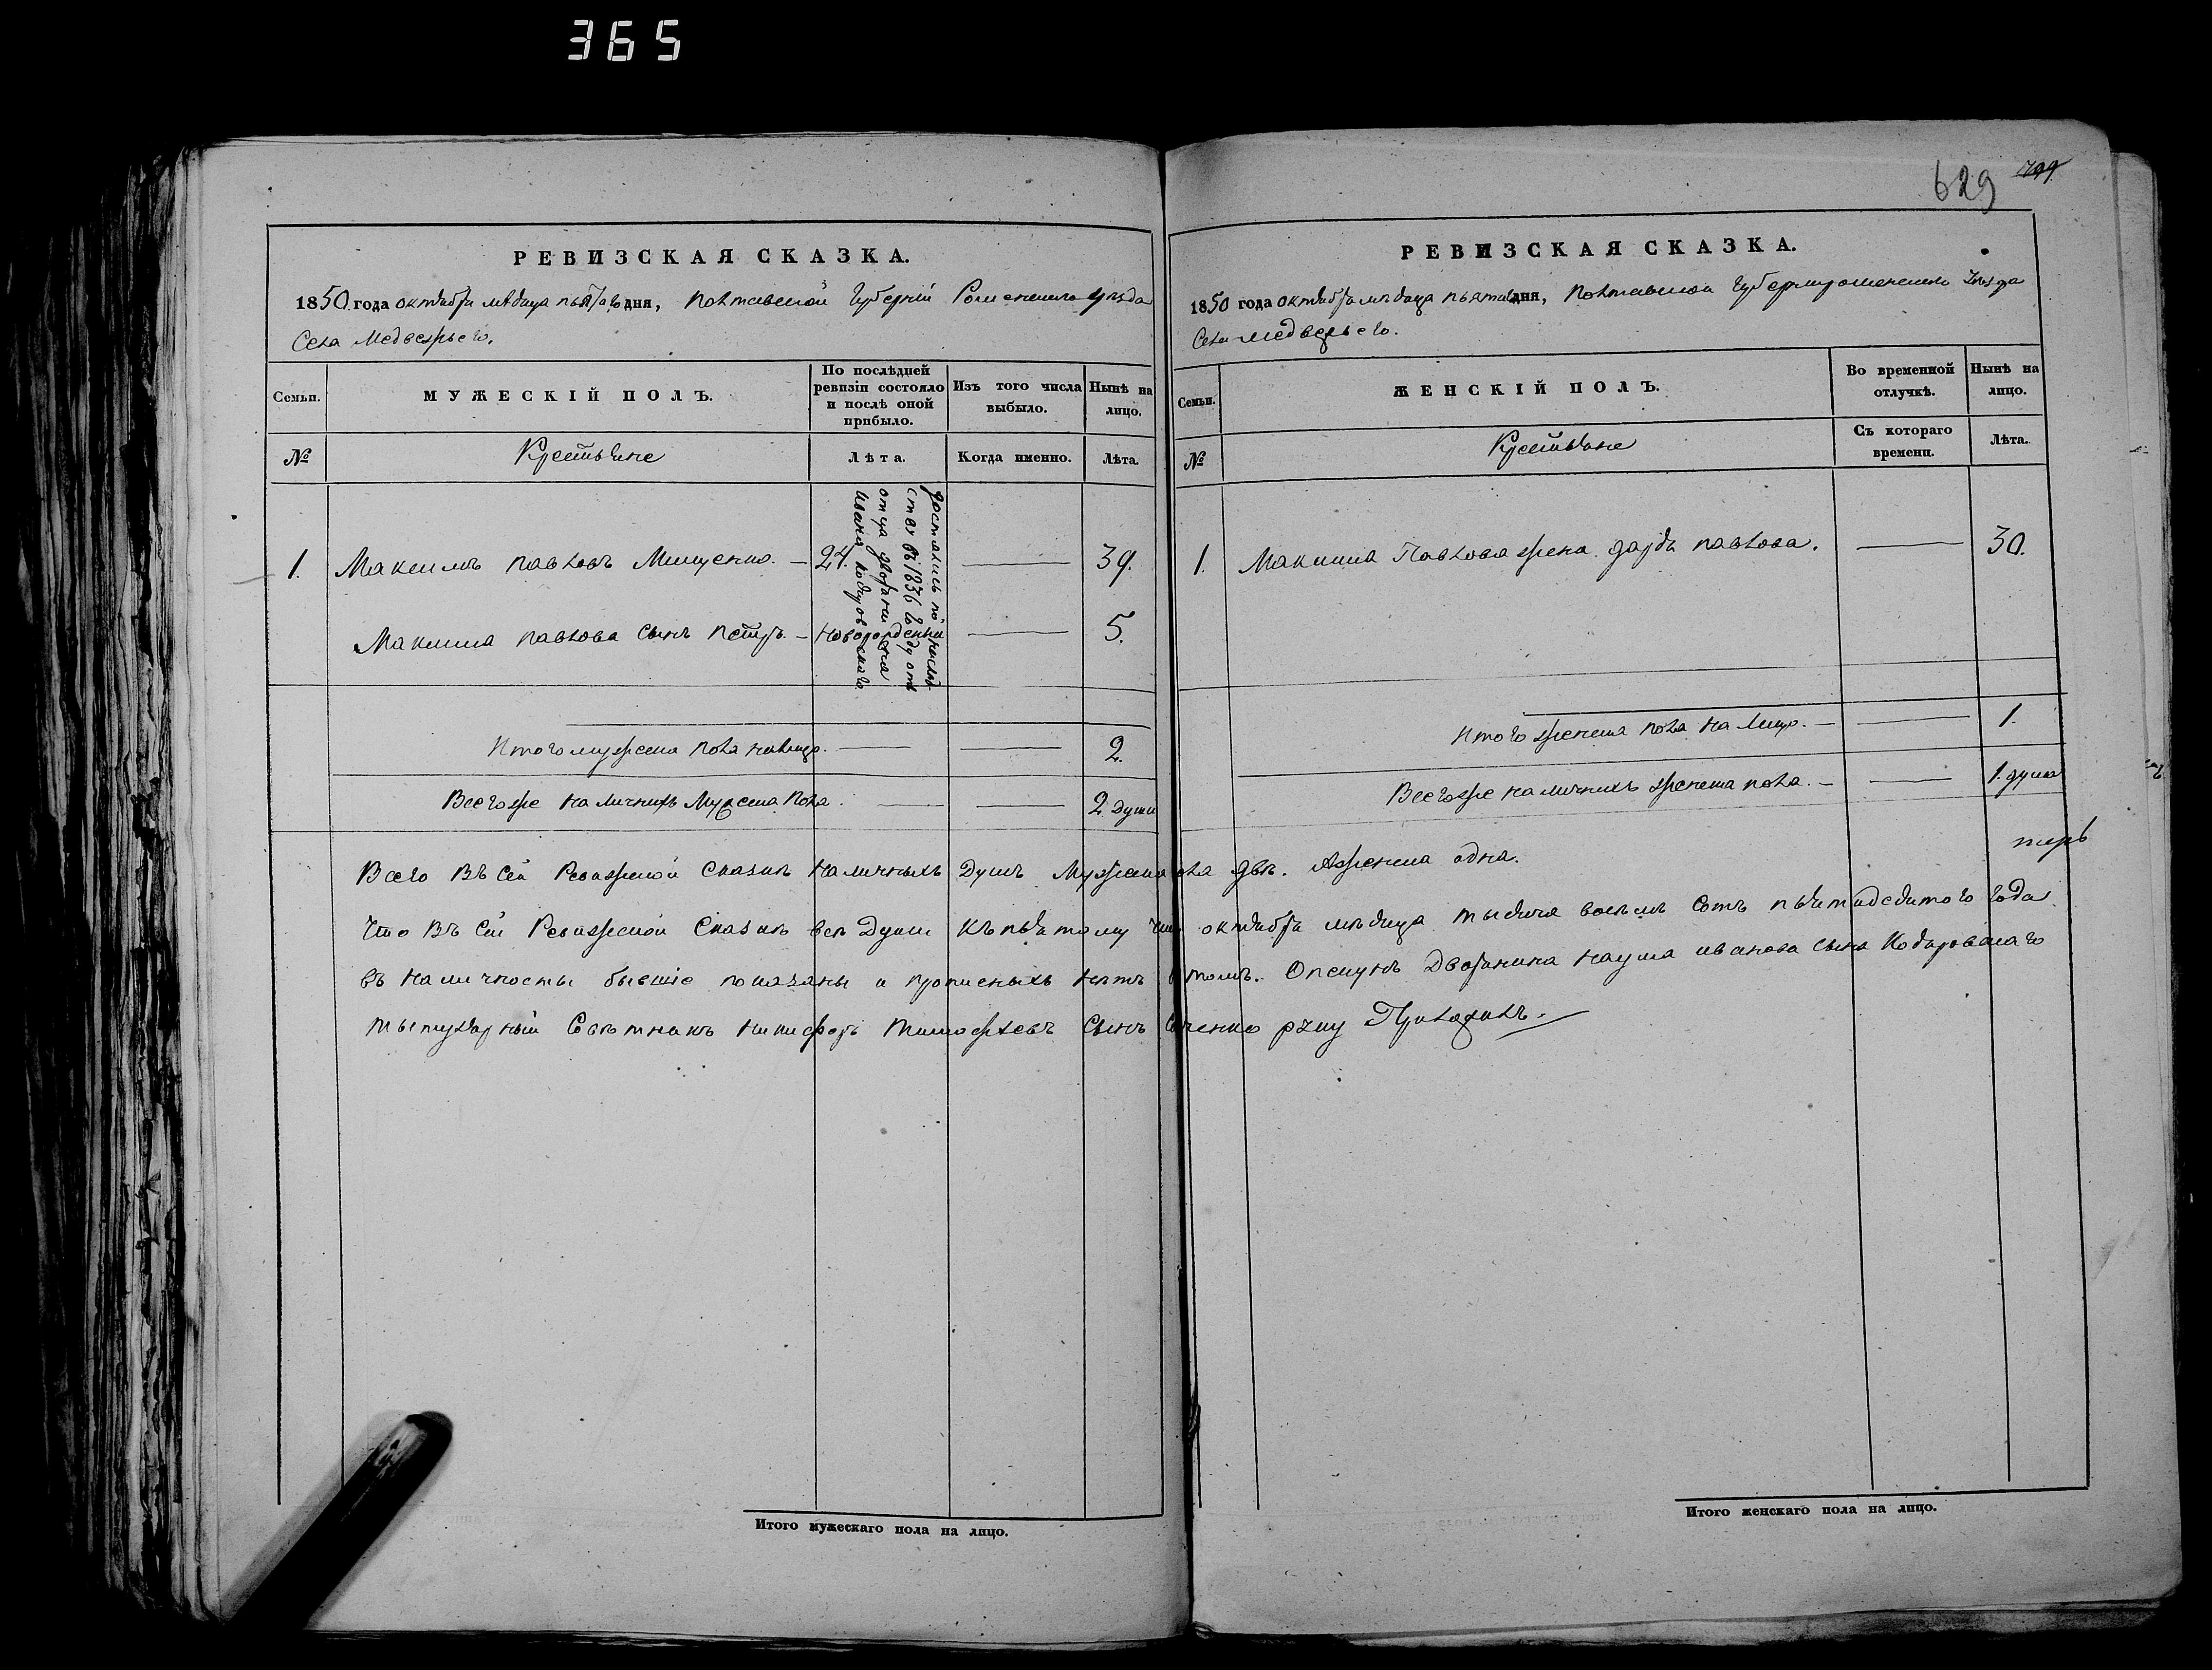 365
629
РЕВИЗСКАЯ СКАЗКА.
1850 года октября мѣсяца пятаго дня, Полтавской Губерніи Роменскаго уѣзда
Села Медвежьего.
Семьи.
МУЖЕСКІЙ ПОЛЪ.
По послѣдней ревизіи состояло и послѣ оной прибыло.
Изъ того числа выбыло.
Нынѣ на лицо.
№
Крестьяне
Лѣта.
Когда именно.
Лѣта.
достались по наслѣд
ству въ 1836 году отъ
отца дворянина
Ивана
1. Максимъ павловъ Мищенко. — 24. — 39.
Максима павлова сынъ петръ. — новорожденны — 5.
Итого мужеска пола налицо. — — 2.
Всегоже наличныхъ Мужеска пола. — — 2 души
РЕВИЗСКАЯ СКАЗКА.
1850 года октября мѣсяца пятаго дня, Полтавской Губерніи роменскаго уѣзда
Села медвежьего.
Семьи.
ЖЕНСКІЙ ПОЛЪ.
Во временной отлучкѣ.
Нынѣ на лицо.
№
Крестьяне
Съ котораго времени.
Лѣта.
1. Максима Павлова жена дарья павлова. — 30.
Итого женска пола на лицо. — — 1.
Всегоже наличныхъ женска пола. — — 1. душа
Всего въ сей Ревизской Сказкѣ наличныхъ Душъ Мужеска пола двѣ. Аженска одна.
что въ сей Ревизской Сказкѣ всѣ Души къ пятому числ октября мѣсяца тысяча восемь сотъ пятидесятого года
въ наличности бывшіе показаны и прописныхъ нѣтъ втомъ. Опекунъ Дворянина наума иванова сына Кодаровскаго
титулярный Совѣтникъ никифоръ тимофѣевъ сынъ руку Приложилъ.
Итого мужескаго пола на лицо.
Итого женскаго пола на лицо.